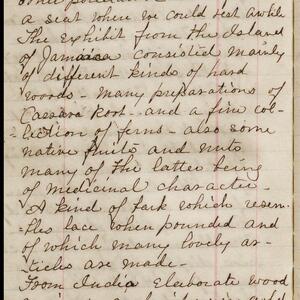 a seat when we could rest awhile
The exhibit from the Island
of Jamaica consisted mainly
of different kinds of hard
woods - many preparations of
Cassava Root - and a fine col-
lection of ferns - also some
native fruits and nuts
many of the latter being
of medicinal character -
A kind of bark which resem-
bles lace when pounded and
of which many lovely ar-
ticles are made -
From India elaborate wood